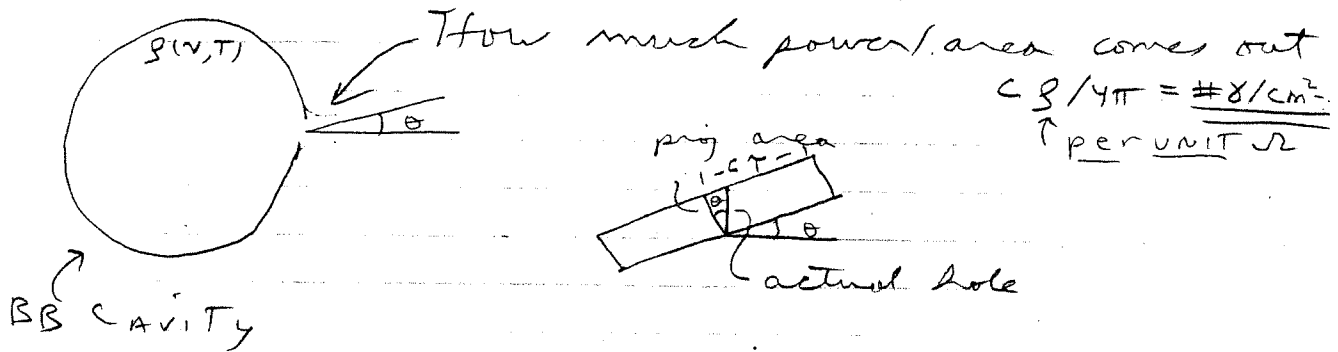 ρ(ν,T)
How much power/area comes out
cρ/4π = #γ/cm²
per UNIT Ω
θ
proj area
θ
θ
actual hole
BB CAVITY